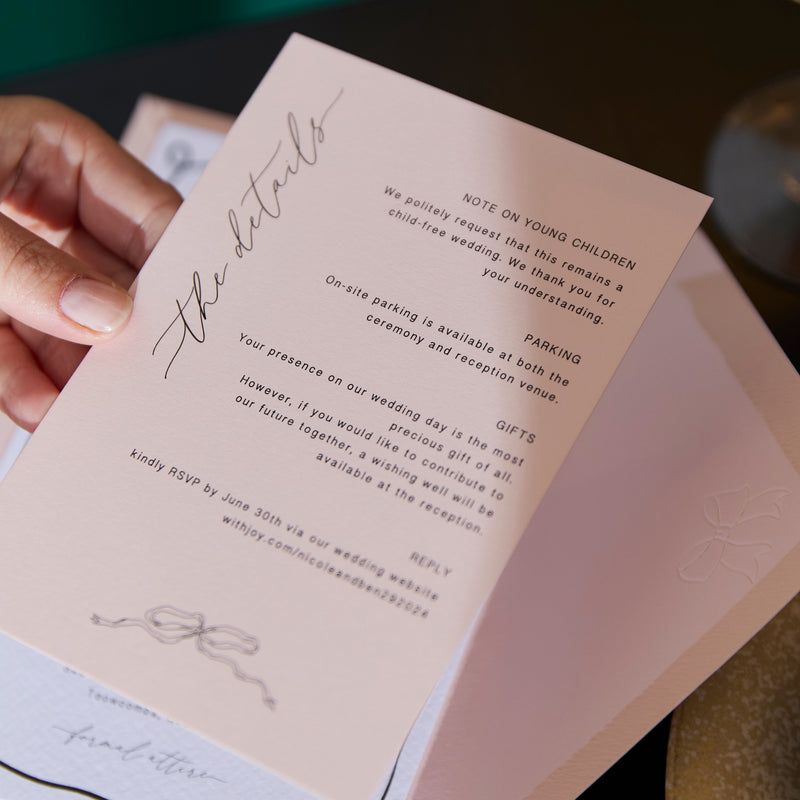 the details
NOTE ON YOUNG CHILDREN
We politely request that this remains a
child-free wedding. We thank you for
your understanding.
PARKING
On-site parking is available at both the
ceremony and reception venue.
GIFTS
Your presence on our wedding day is the most
precious gift of all.
However, if you would like to contribute to
our future together, a wishing well will be
available at the reception.
REPLY
kindly RSVP by June 30th via our wedding website
withjoy.com/nicoleandben292026
Toowoomba,
formal attire